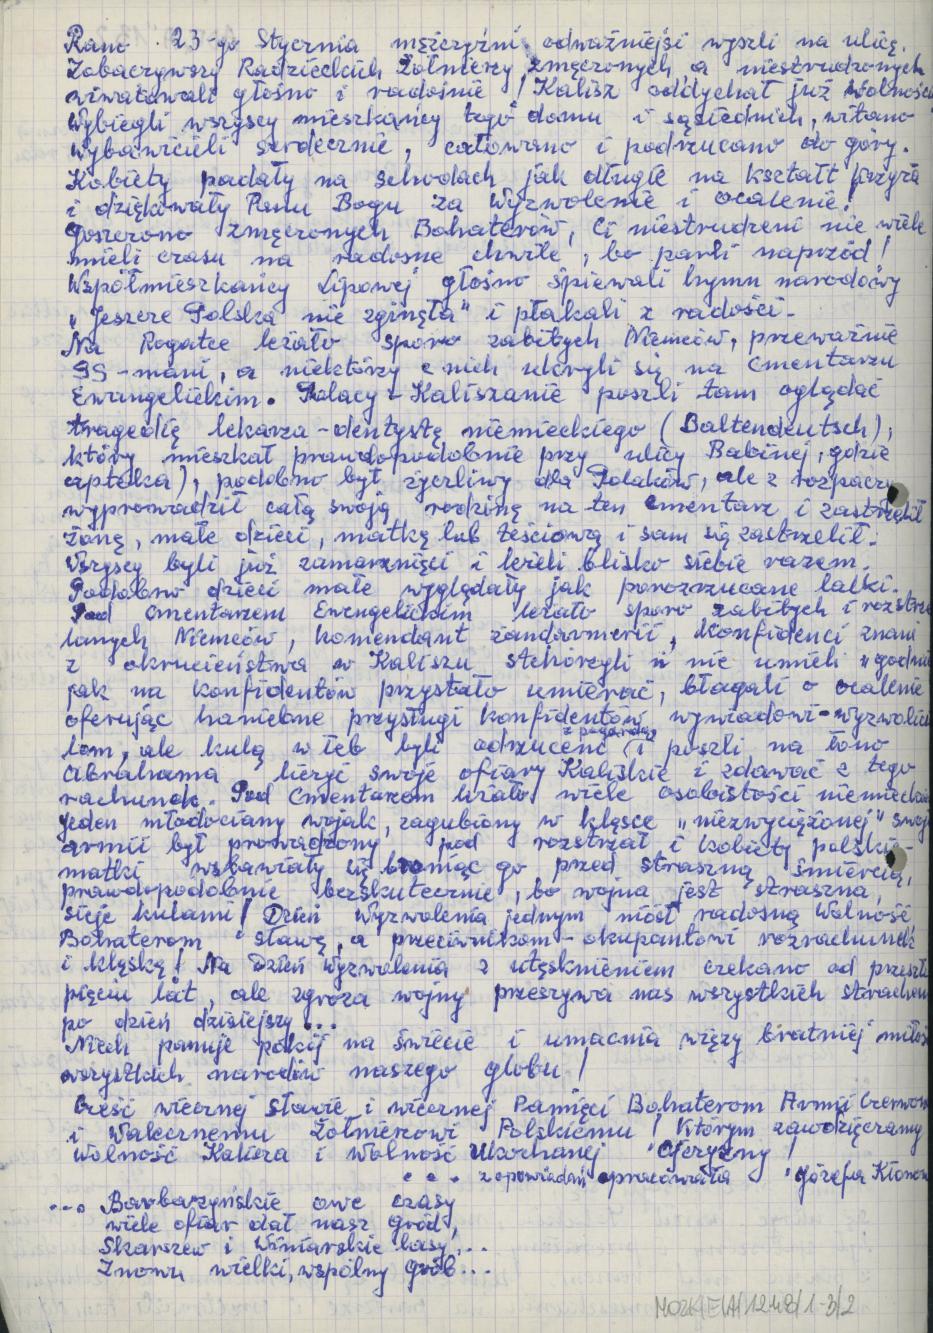 Rano 23-go Stycznia mężczyźni odważniejsi wyszli na ulicę.
Zobaczywszy Radzieckich Żołnierzy, zmęczonych a niestrudzonych
wiwatowali głośno i radośnie! Kalisz oddychał już Wolności
Wybiegli wszyscy mieszkańcy tego domu i sąsiednich, witano
wybawicieli serdecznie, całowano i podrzucano do góry.
Kobiety padały na schodach jak długie na kształt krzyża
i dziękowały Panu Bogu za Wyzwolenie i ocalenie!
Goszczono zmęczonych Bohaterów, Ci niestrudzeni nie wiele
mieli czasu na radosne chwile, bo parli naprzód!
Współmieszkańcy Lipowej głośno śpiewali hymn narodowy
"Jeszcze Polska nie zginęła" i płakali z radości.
Na Rogatce leżało sporo zabitych Niemców, przeważnie
SS-mani, a niektórzy z nich ukryli się na cmentarzu
Ewangelickim. Polacy-Kaliszanie poszli tam oglądać
tragedię lekarza-dentystę niemieckiego (Baltendeutsch),
który mieszkał prawdopodobnie przy ulicy Babinej, gdzie
apteka), podobno był życzliwy dla Polaków, ale z rozpaczy
wyprowadził całą swoją rodzinę na ten cmentarz i zastrzelił
żonę, małe dzieci, matkę lub teściową i sam się zastrzelił.
Wszyscy byli już zamarznięci i leżeli blisko siebie razem.
Podobno dzieci małe wyglądały jak porozrzucane lalki.
Pod Cmentarzem Ewangelickim leżało sporo zabitych i rozstrze
lanych Niemców, komendant żandarmerii, Konfidenci znani
z okrucieństwa w Kaliszu stchórzyli i nie umieli "godnie
jak na konfidentów przystało umierać, błagali o ocalenie
oferując haniebne przysługi konfidentów wywiadowi-wyzwolicie
lom, ale kulą w łeb byli odrzuceni z pogardą i poszli na łono
Abrahama liczyć swoje ofiary Kaliskie i zdawać z tego
rachunek. Pod Cmentarzem leżało wiele osobistości niemieckich
Jeden młodociany wojak, zagubiony w klęsce "niezwyciężonej" swojej
armii był prowadzony pod rozstrzał i kobiety polskie-
matki wstawiały się broniąc go przed straszną śmiercią,
prawdopodobnie bezskutecznie, bo wojna jest straszna,
sieje kulami! Dzień Wyzwolenia jednym niósł radosną Wolność
Bohaterom sławę, a przeciwnikom-okupantowi rozrachunek
i klęskę! Na Dzień Wyzwolenia z utęsknieniem czekano od przeszło
pięciu lat, ale zgroza wojny przeszywa nas wszystkich strachem
po dzień dzisiejszy...
Niech panuje pokój na świecie i umacnia więzy bratniej miłości
wszystkich narodów naszego globu!
Cześć wiecznej sławie i wiecznej Pamięci Bohaterom Armii Czerwonej
i Walecznemu Żołnierzowi Polskiemu! Którym zawdzięczamy
Wolność Kalisza i Wolność Ukochanej Ojczyzny!
... z opowiadań opracowała Józefa Kłonow
... Barbarzyńskie owe czasy
wiele ofiar dał nasz gród,
Skarszew i Winiarskie lasy,...
Znowu wielki, wspólny grób...
MOZK/E/A/1248/1-3/2